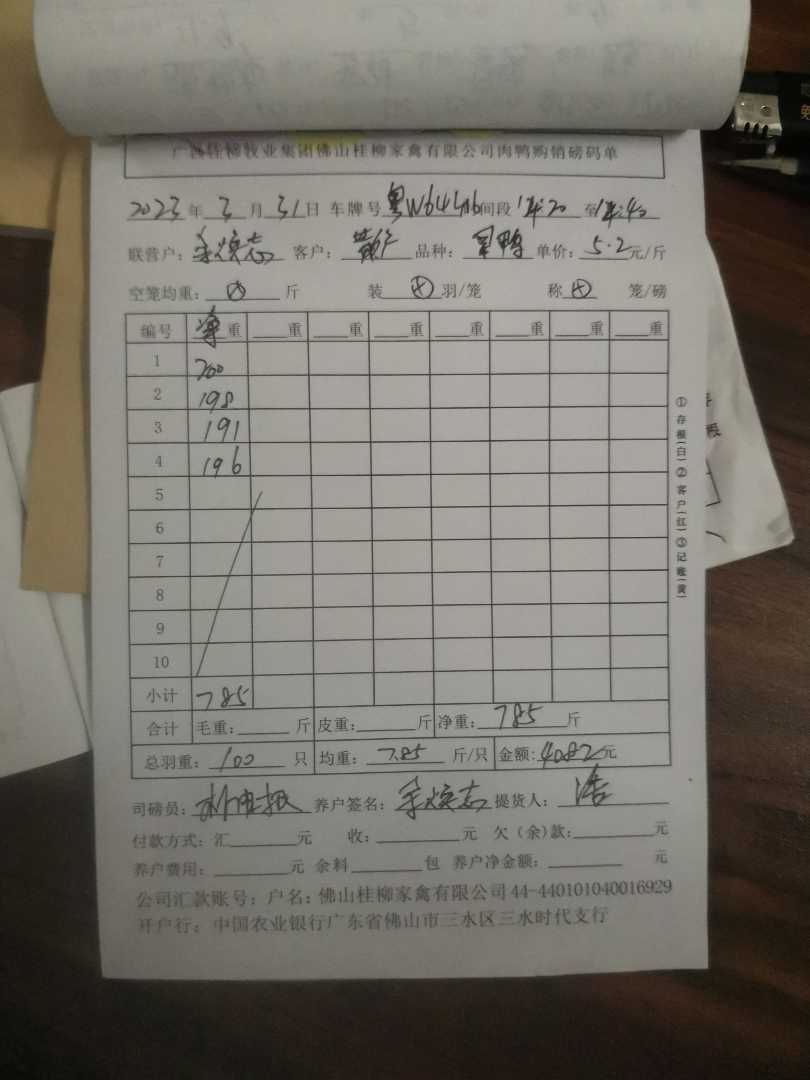 广西桂柳牧业集团佛山桂柳家禽有限公司肉鸭购销磅码单
2023年3月31日 车牌号 间段14:20至14:40
联营户: 客户: 品种: 鸭 单价:5.2元/斤
空笼均重: 斤 装 羽/笼 称 笼/磅
编号 净重 重 重 重 重 重 重 重
1 200
2 198
3 191
4 196
5
6
7
8
9
10
小计 785
合计 毛重: 斤 皮重: 斤 净重:785斤
总羽重:100只 均重:7.85斤/只 金额:4082元
司磅员: 养户签名: 提货人:浩
付款方式:汇 元 收: 元 欠(余)款: 元
养户费用: 元 余料 包 养户净金额: 元
公司汇款账号:户名:佛山桂柳家禽有限公司44-440101040016929
开户行:中国农业银行广东省佛山市三水区三水时代支行
①存根(白)②客户(红)③记账(黄)